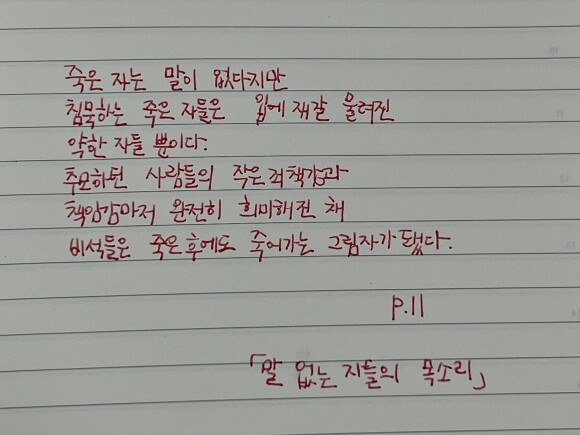 죽은 자는 말이 없다지만
침묵하는 죽은 자들은 입에 재갈 물려진
약한 자들 뿐이다.
추모하던 사람들의 작은 죄책감과
책임감마저 완전히 희미해진 채
비석들은 죽은 후에도 죽어가는 그림자가 됐다.
P.11
「말 없는 자들의 목소리」